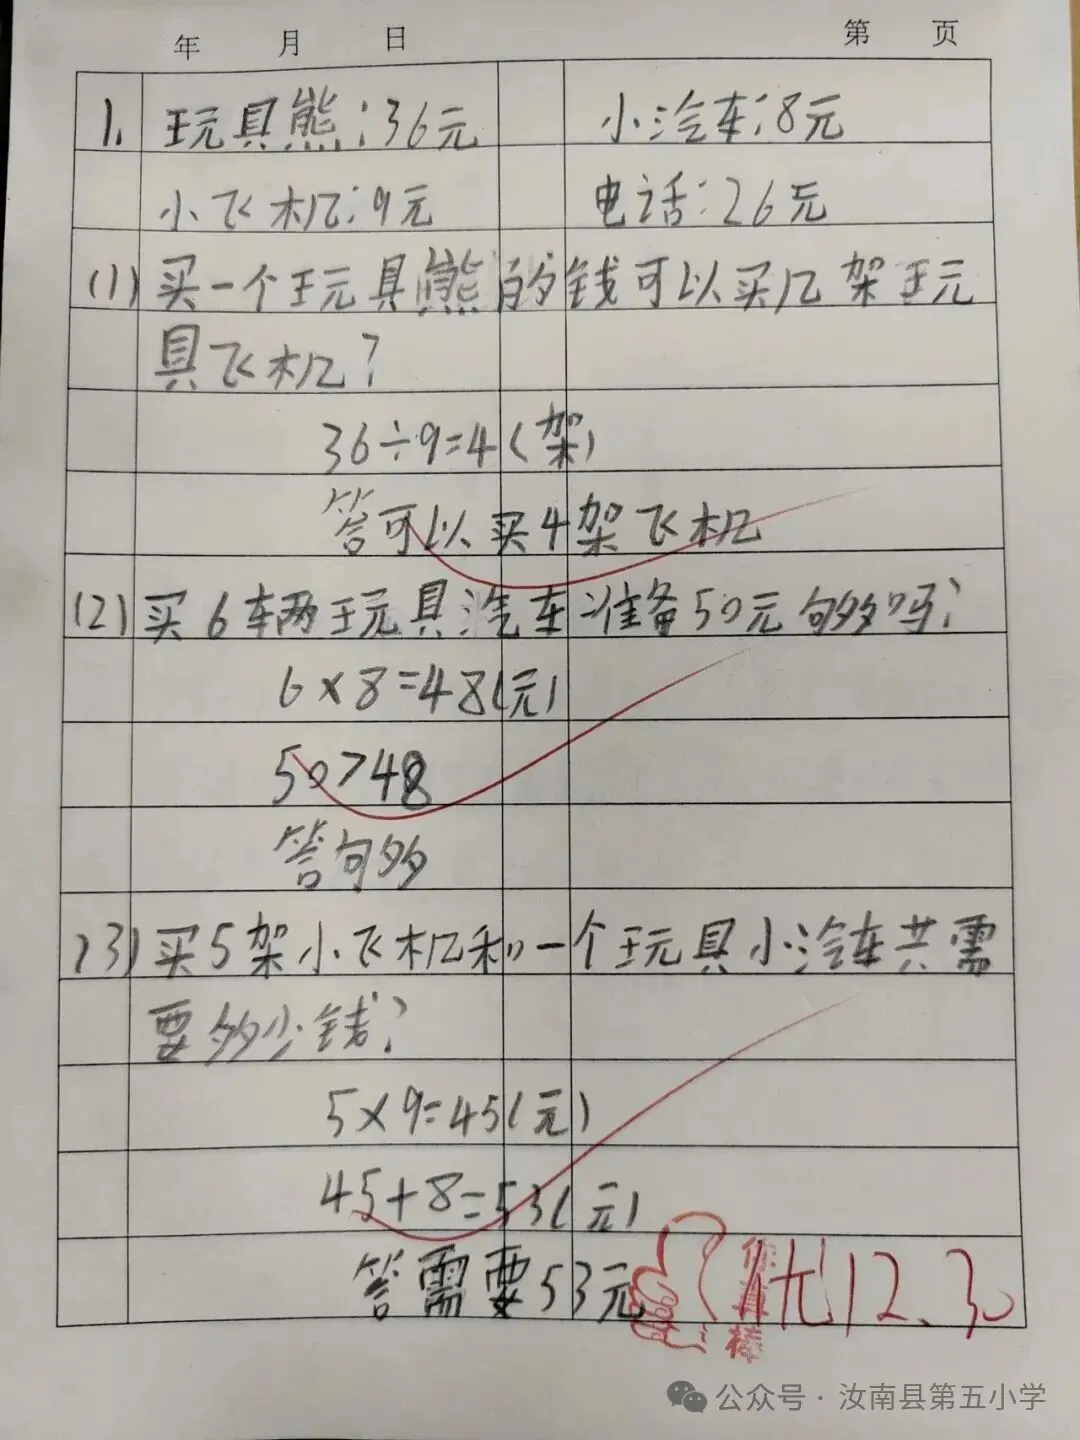 年 月 日 第 页
1. 玩具熊:36元 小汽车:8元
小飞机:9元 电话:26元
(1) 买一个玩具熊的钱可以买几架玩
具飞机?
36÷9=4(架)
答可以买4架飞机
(2) 买6车两玩具汽车准备50元够吗?
6×8=48(元)
50>48
答够
(3) 买5架小飞机和一个玩具小汽车共需
要多少钱?
5×9=45(元)
45+8=53(元)
答需要53元
你真棒
优 12.30
公众号·汝南县第五小学